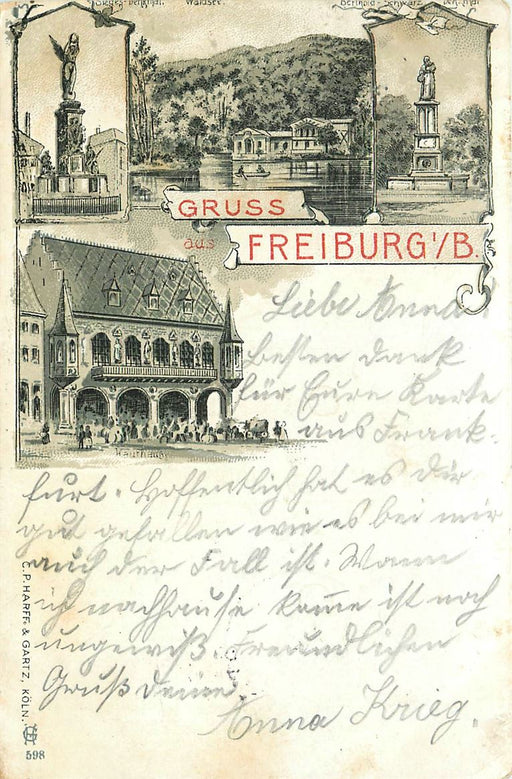 Sieges-Denkmal.
Waldsee.
Berthold-Schwarz Denkmal
GRUSS
aus
FREIBURG i/B.
Kaufhaus
Liebe Anna!
besten Dank
für Eure Karte
aus Frank-
furt. Hoffentlich hat es dir
gut gefallen wie es bei mir
auch der Fall ist. Wann
ich nachhause komme ist noch
ungewiß. Freundlichen
Gruß Deine
Anna Krieg.
C. P. HARFF. & GARTZ, KÖLN.
598